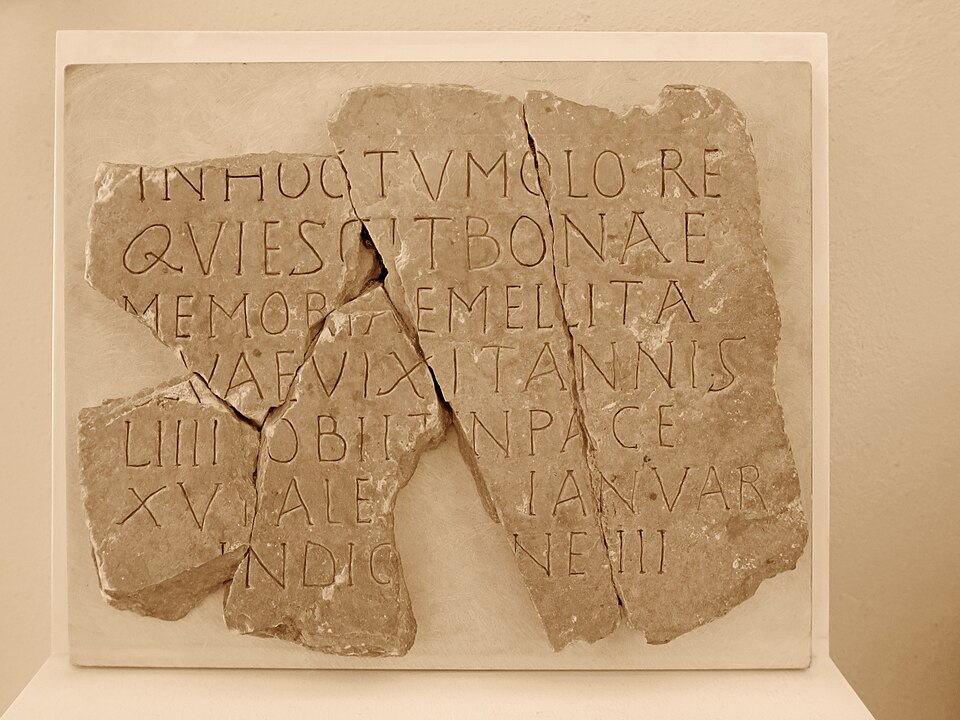 IN HOC TVMOLO RE
QVIESCIT BONAE
MEMORIAE MELLITA
VAE VIXIT ANNIS
LIIII OBIIT IN PACE
XV ALE IANVAR
INDIC NE III